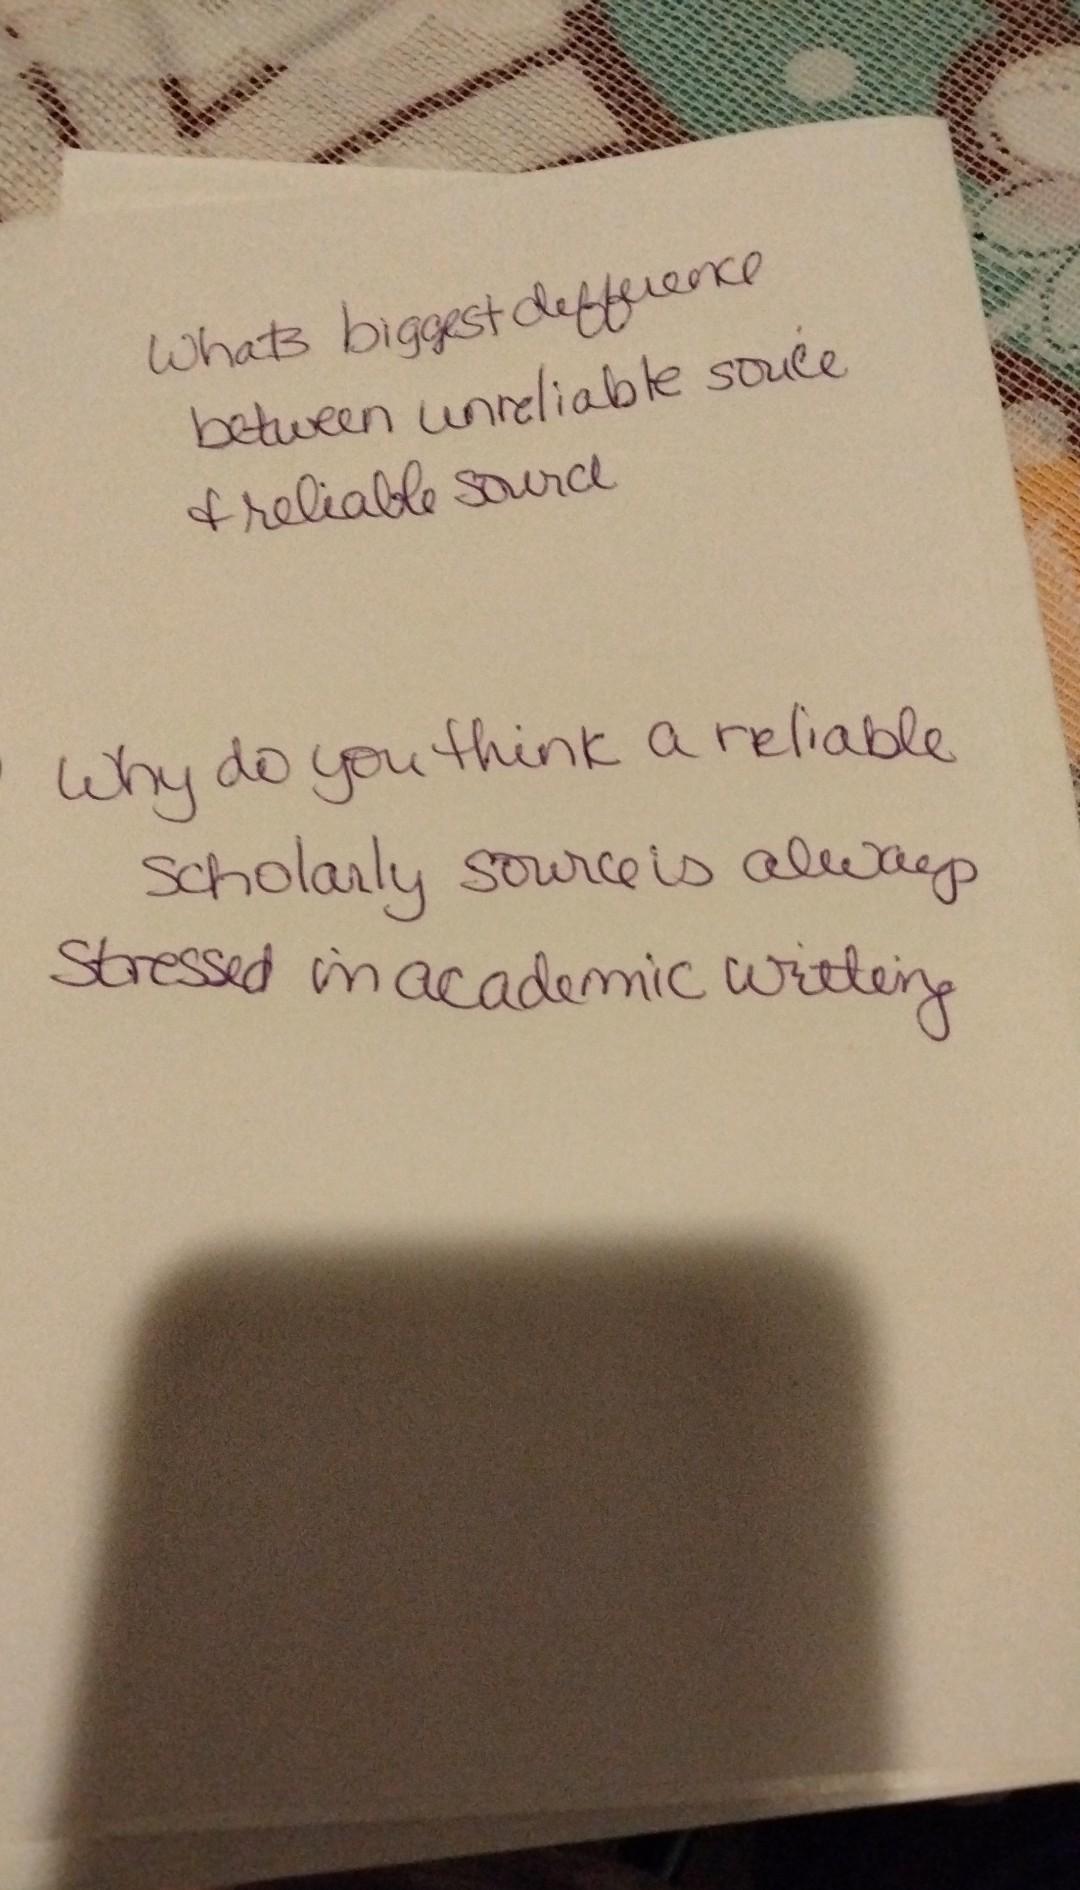 Whats biggest defference
between unreliable source
& reliable source
Why do you think a reliable
scholarly source is always
stressed in academic writting